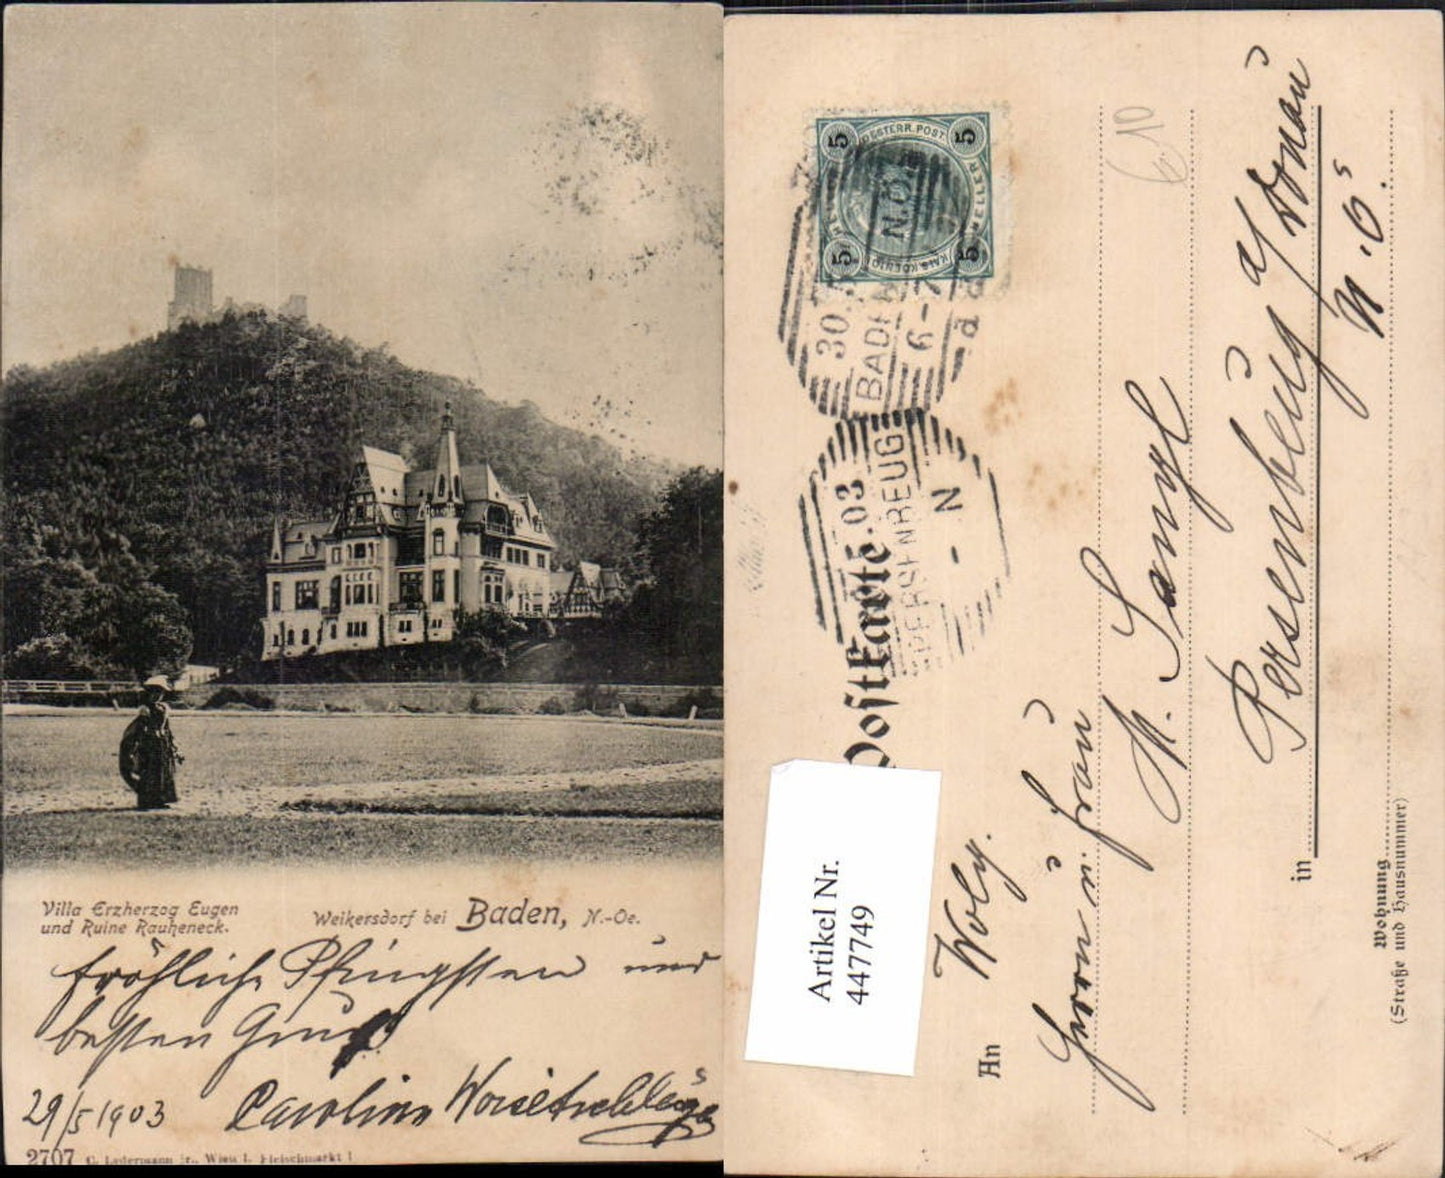 Villa Erzherzog Eugen
und Ruine Rauheneck.
Weikersdorf bei Baden, N.-Oe.
fröhliche Pfingsten und
besten Gruß
29/5 1903
2707 C. Ledermann jr., Wien I. Fleischmarkt 1
OESTERR. POST
5 5
5 5
N.Ö.
30.
BADEN
6-7
03
PERSENBEUG
- N
Postkarte
Artikel Nr.
447749
An
Herrn u. Frau
in Persenbeug a/Donau
N.Ö.
Wohnung
(Straße und Hausnummer)